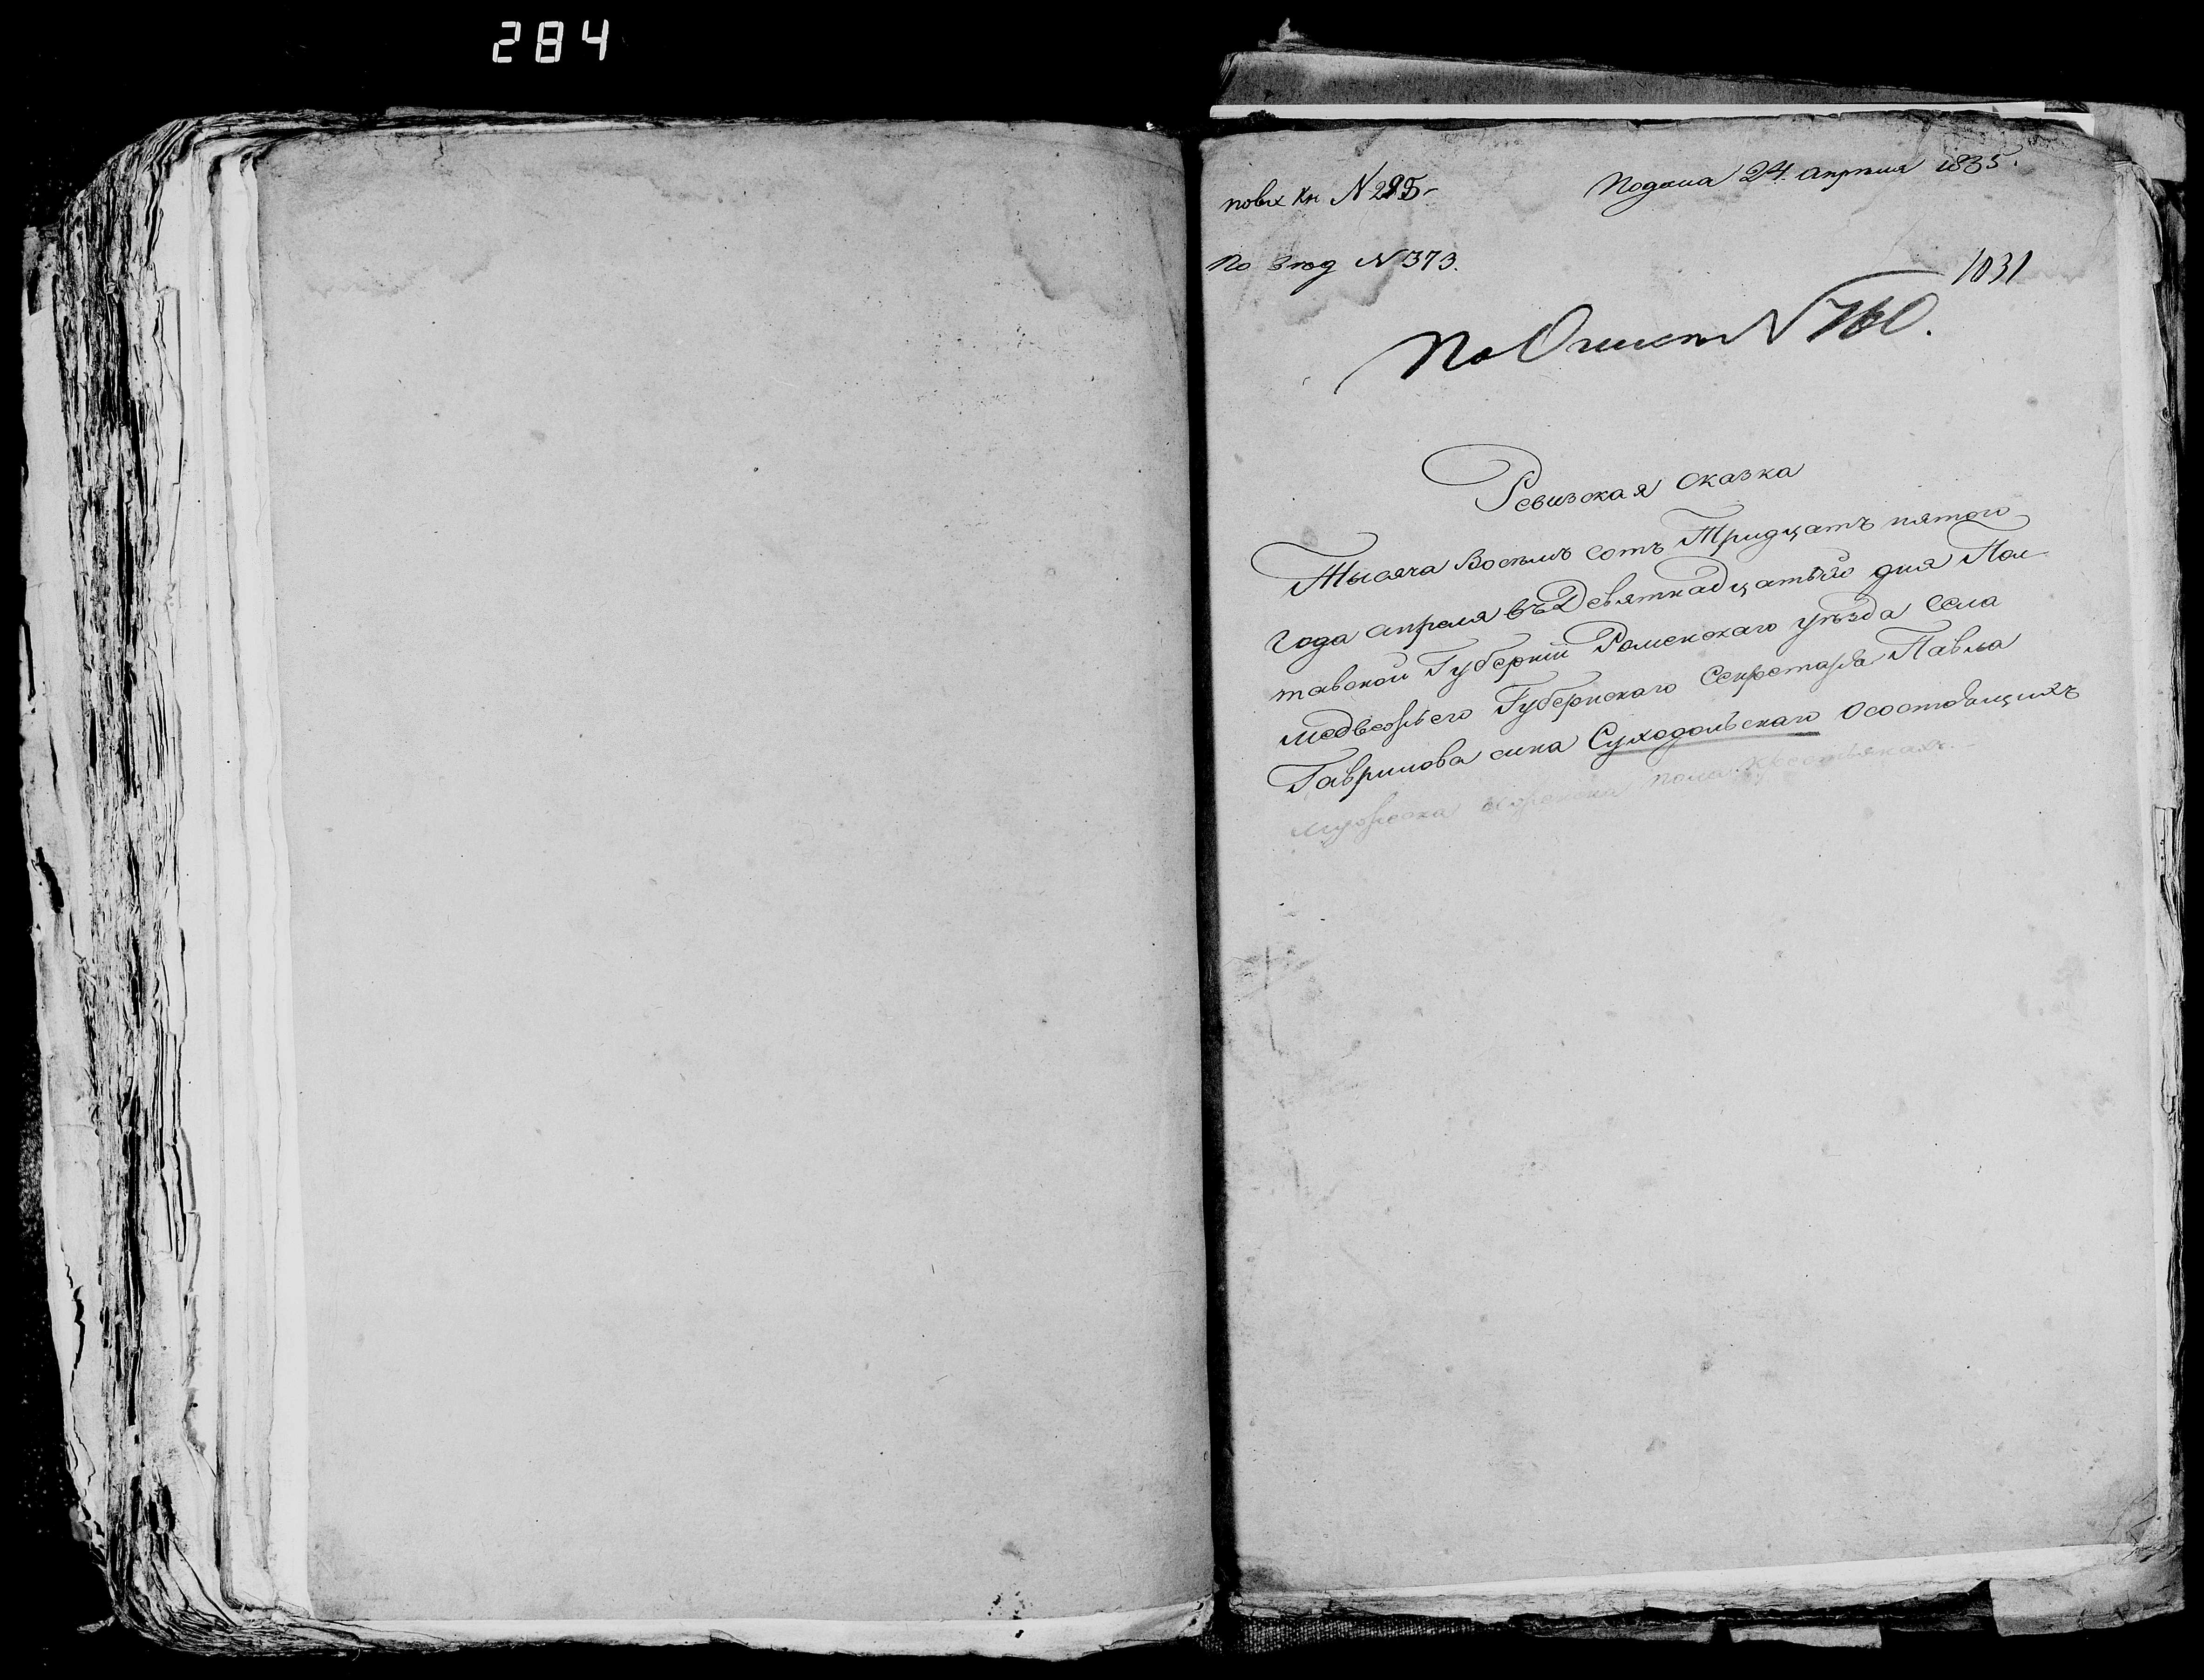 284
по вх кн N 285-
Подана 24. апреля 1835.
По Вход N 373.
1031
По Описи N 760.
Ревизская сказка
Тысяча Восемь сотъ Тридцать пятого
Года апреля въ Девятнадцатый дня Пол-
тавской Губернии Роменскаго уѣзда села
медвежьего Губернскаго Секретаря Павла
Гаврилова сина Суходольскаго О состоящихъ
мужеска и женска пола крестьянахъ.